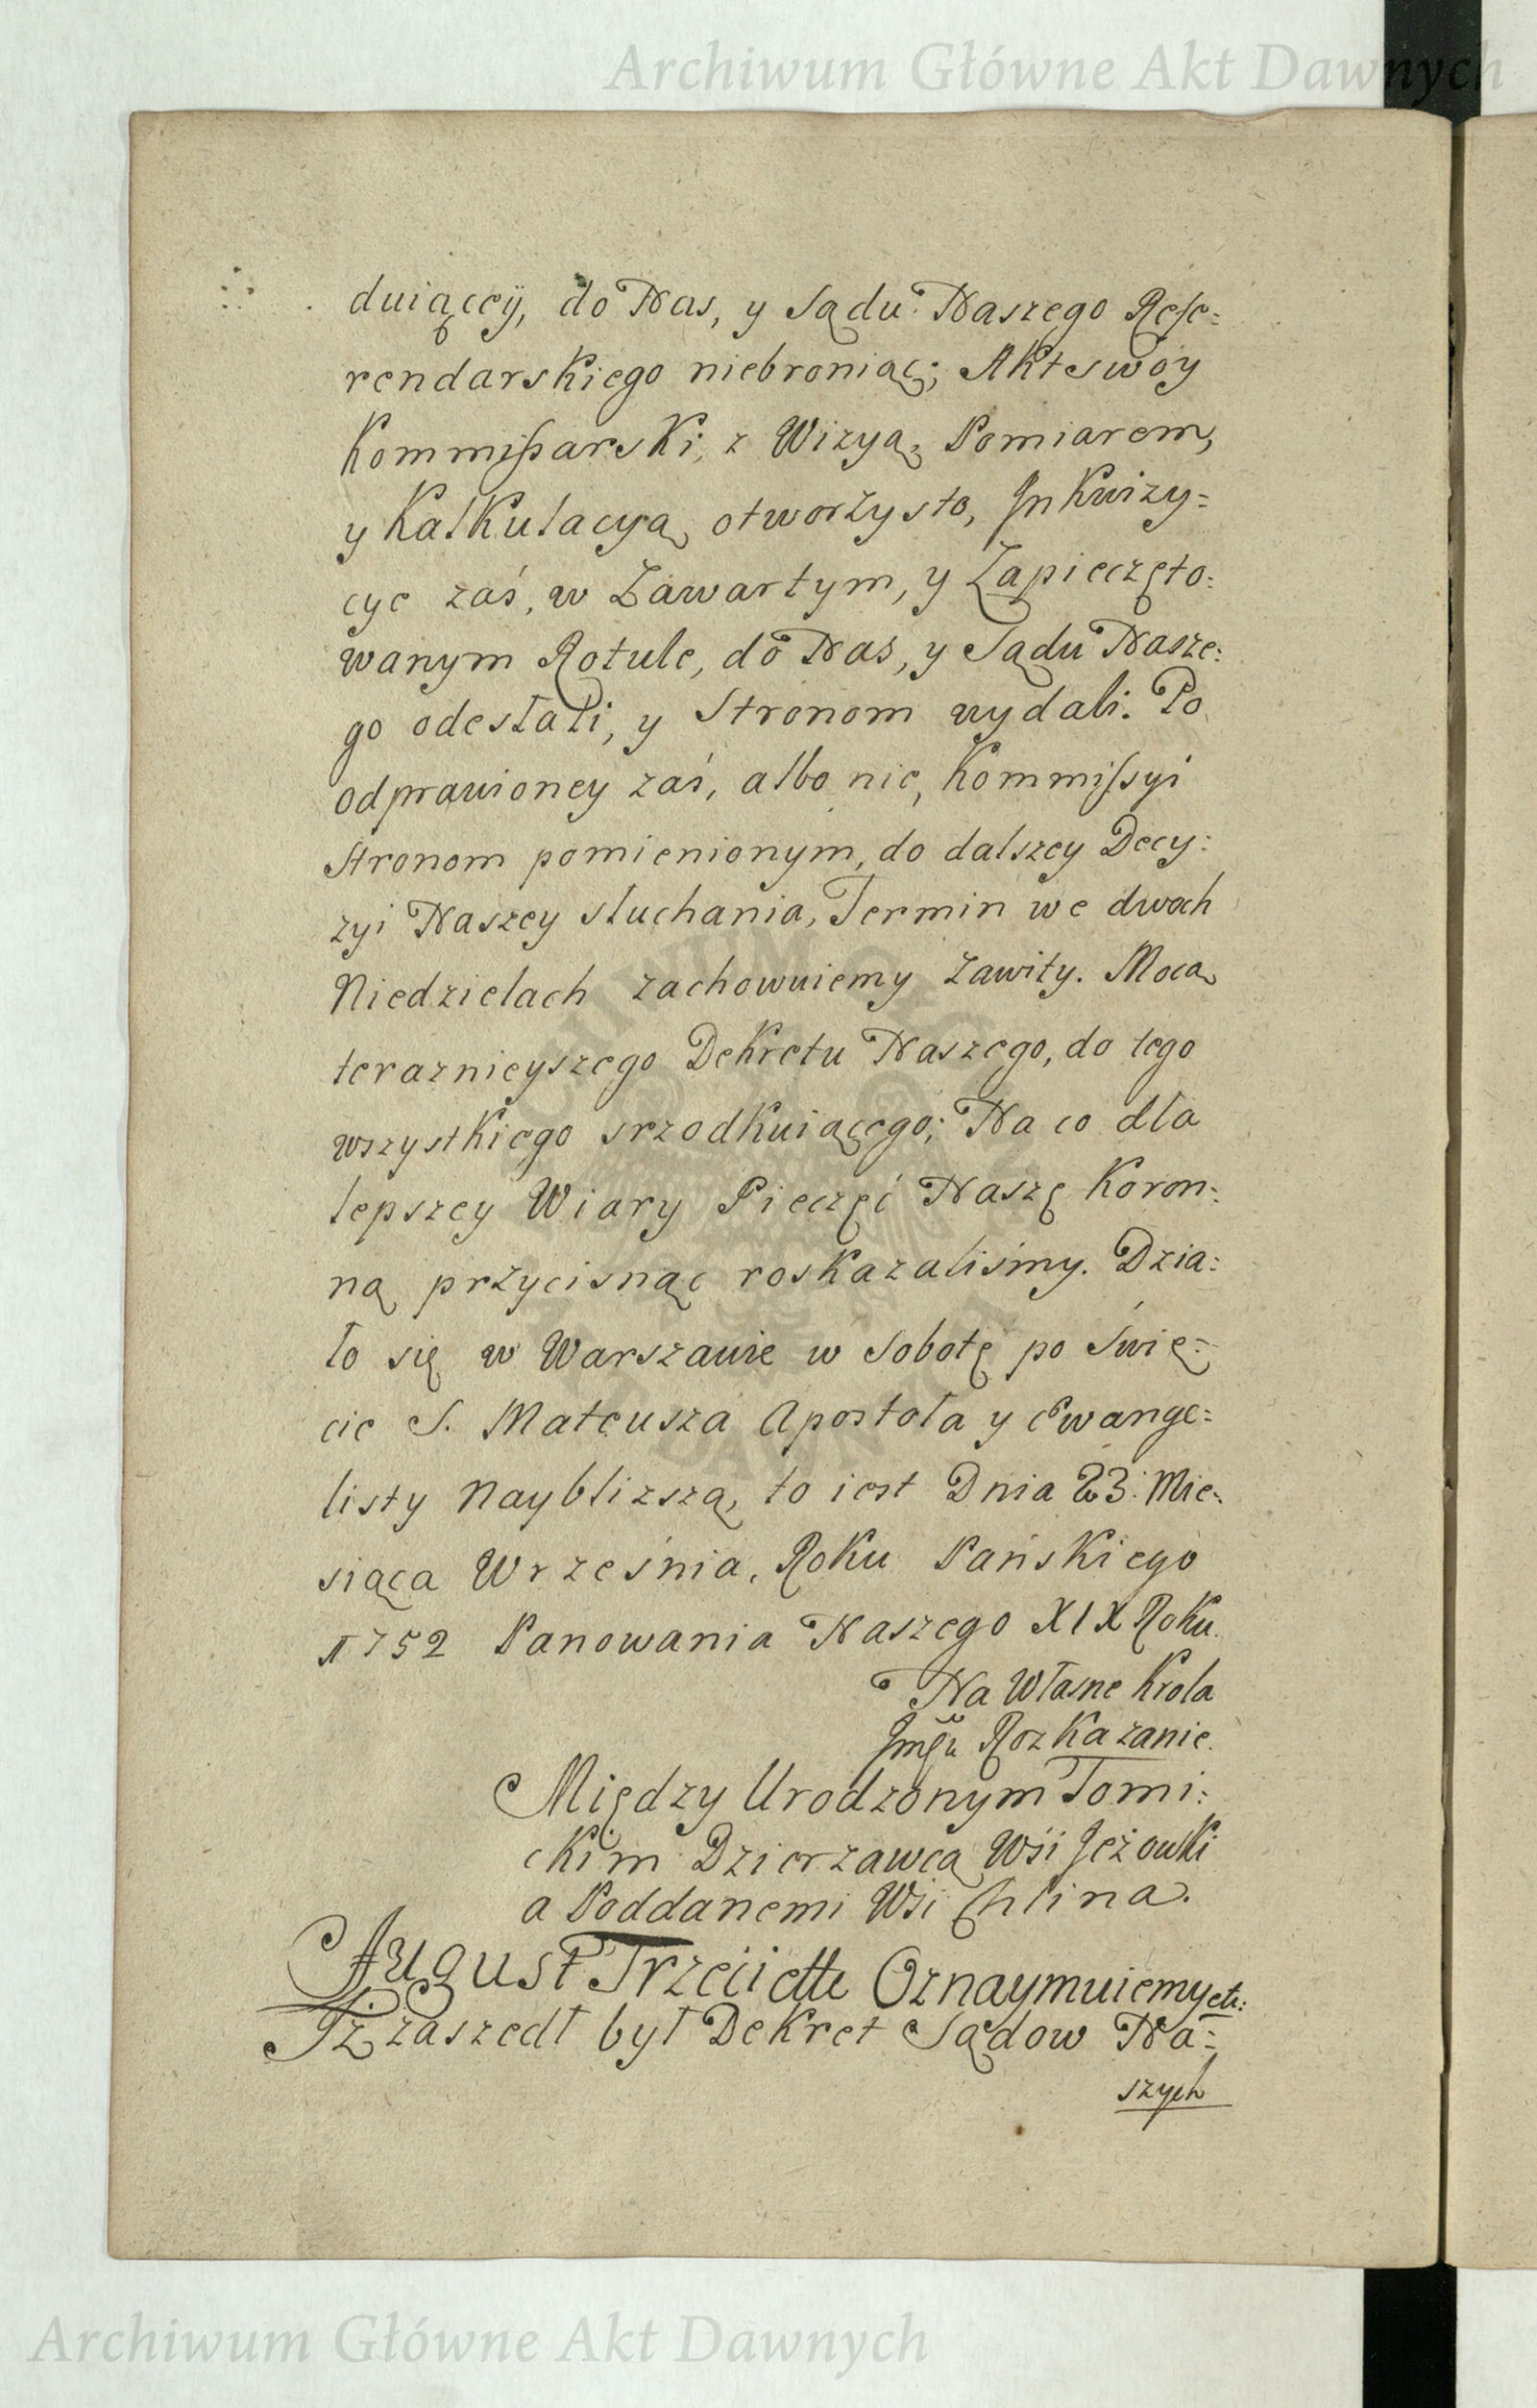 Archiwum Główne Akt Dawnych
duiącey, do Nas, y Sądu Naszego Refe=
rendarskiego niebroniąc; Akt swóy
Kommissarski, z Wizyą, Pomiarem,
y Kalkulacyą otworzysto, Inkwizy=
cye zaś, w Zawartym, y Zapieczęto=
wanym Rotule, do Nas, y Sądu Nasze=
go odesłali, y Stronom wydali. Po
odprawioney zaś, albo nie, Kommissyi
Stronom pomienionym, do dalszey Decy=
zyi Naszey słuchania, Termin we dwoch
Niedzielach zachowuiemy zawity. Mocą
teraznieyszego Dekretu Naszego, do tego
wszystkiego srzodkuiącego; Na co dla
lepszey Wiary Pieczęć Naszę Koron=
ną przycisnąc roskazaliśmy. Dzia=
ło się w Warszawie w Sobotę po Świę=
cie S. Mateusza Apostoła y Ewange=
listy naybliższą, to iest Dnia 23: Mie=
siąca Września, Roku Pańskiego
1752 Panowania Naszego XIX Roku.
Na Własne Krola
Rozkazanie.
Między Urodzonym Tomi=
ckim Dzierzawcą Wśi Jeżowski
a Poddanemi Wśi Chlina.
August Trzeci ettc Oznaymuiemy etc:
Iż zaszedł był Dekret Sądow Na=
szych
Archiwum Główne Akt Dawnych